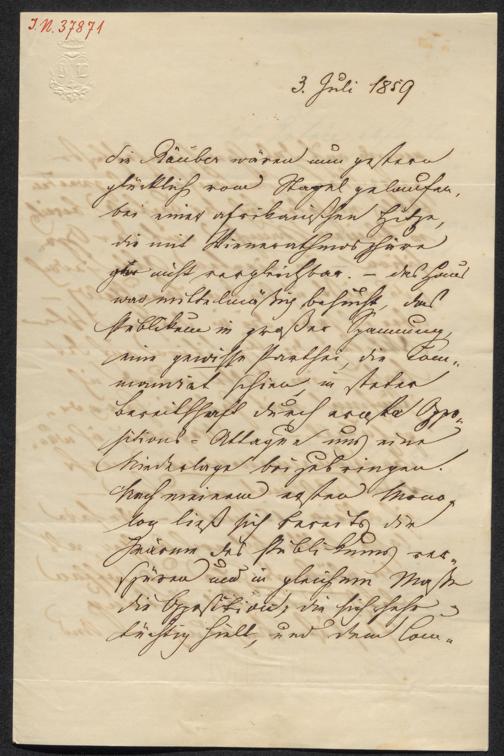 I.N. 37871
3. Juli 1859
Die Räuber wären nun gestern
glücklich vom Stapel gelaufen,
bei einer afrikanischen Hitze,
die mit Wieneratmosphäre
gar nicht vergleichbar. – das Haus
war mittelmäßig besucht, das
Publikum in großer Spannung,
eine gewisse Parthei, die Com=
mandirt schien, in steter
Bereitschaft durch Oppo=
sitions=Attaque uns eine
Niederlage beizubringen.
Nach meinem ersten Mono=
log ließ sich bereits die
Wärme des Publikums ver=
spüren und in gleichem Maße
die Opposition, die sich sehr
tüchtig hielt, und dem Com=